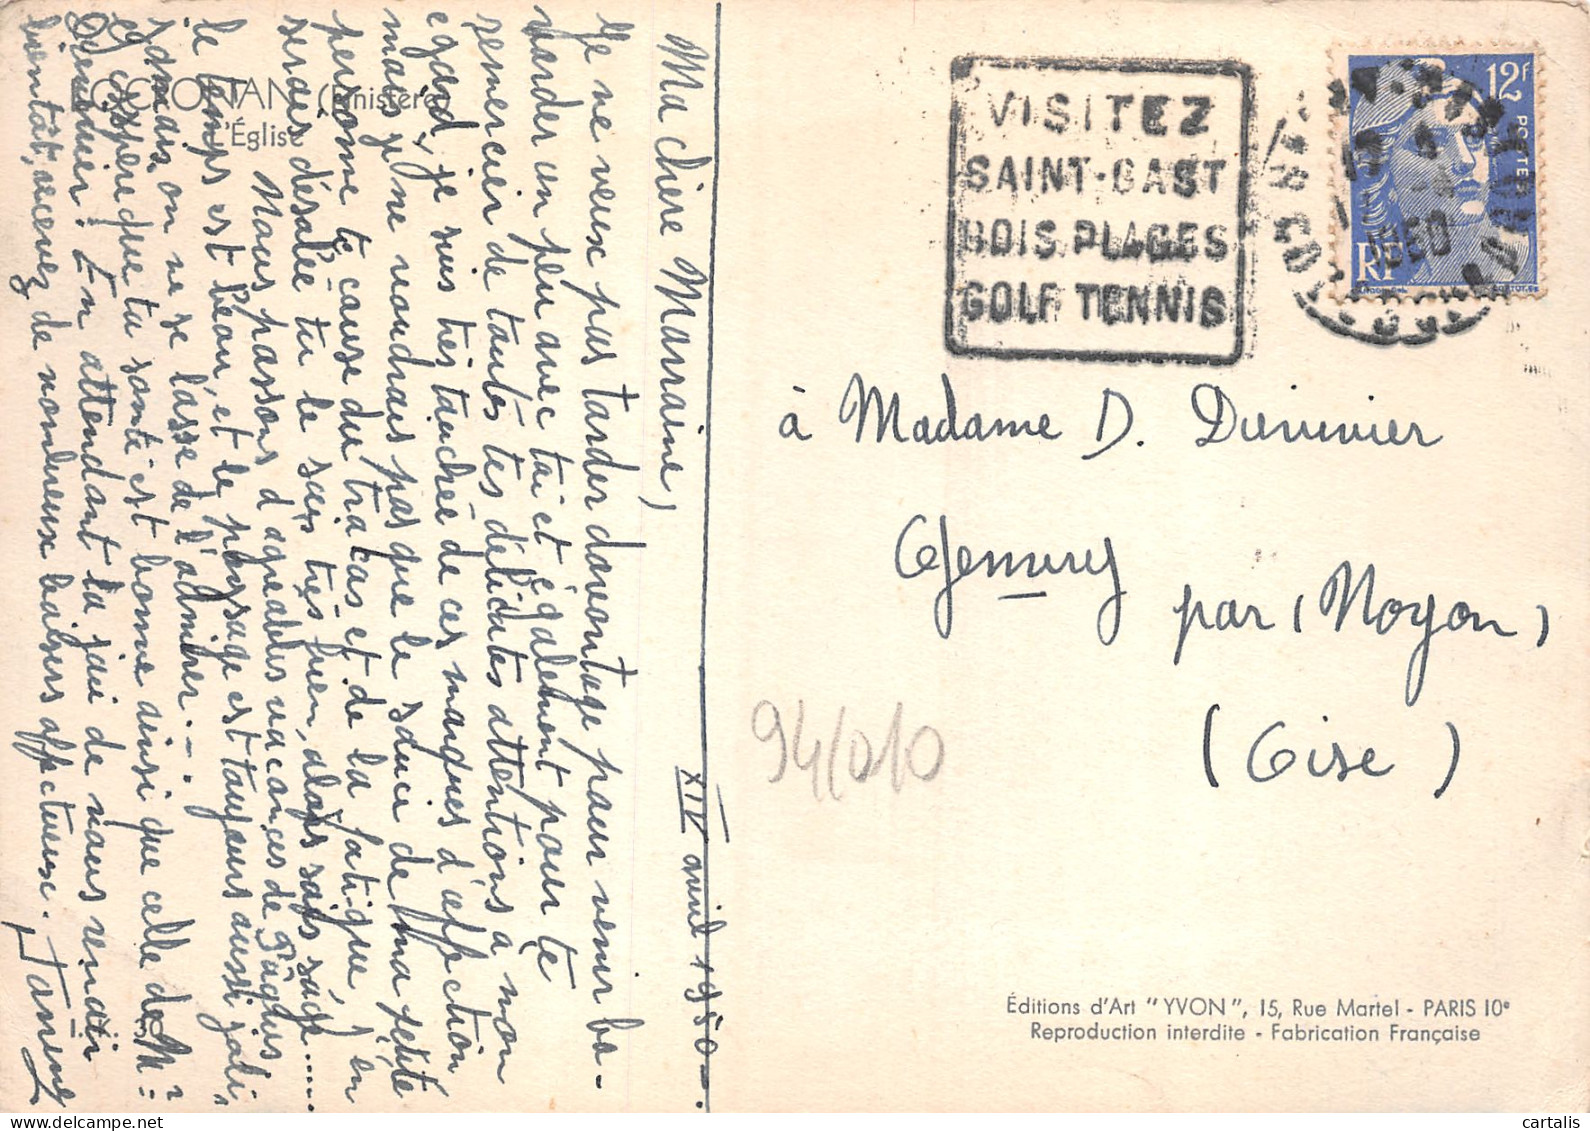 Ma chère Marraine,
XIV avril 1950.
Je ne veux pas tarder davantage pour venir ba-
varder un peu avec toi et également pour te
remercier de toutes tes délicates attentions à mon
égard, je suis très touchée de ces marques d'affection
mais je ne voudrais pas que le souci de ma petite
personne te cause du tracas et de la fatigue, j'en
serais désolée tu le sais très bien, alors sois sage.....
Nous passons d'agréables vacances de Pâques,
le temps est beau, et le paysage est toujours aussi joli,
jamais on ne se lasse de l'admirer....
J'espère que ta santé est bonne ainsi que celle de Mr
Dummier. En attendant la joie de vous revoir
bientôt, recevez de nombreux baisers affectueux.
(Finistère)
L'Église
VISITEZ
SAINT-CAST
BOIS PLAGES
GOLF TENNIS
12F
POSTES
RF
1950
à Madame D.
par (Noyon)
(Oise)
94/010
Éditions d'Art "YVON", 15, Rue Martel - PARIS 10e
Reproduction interdite - Fabrication Française
cartalis